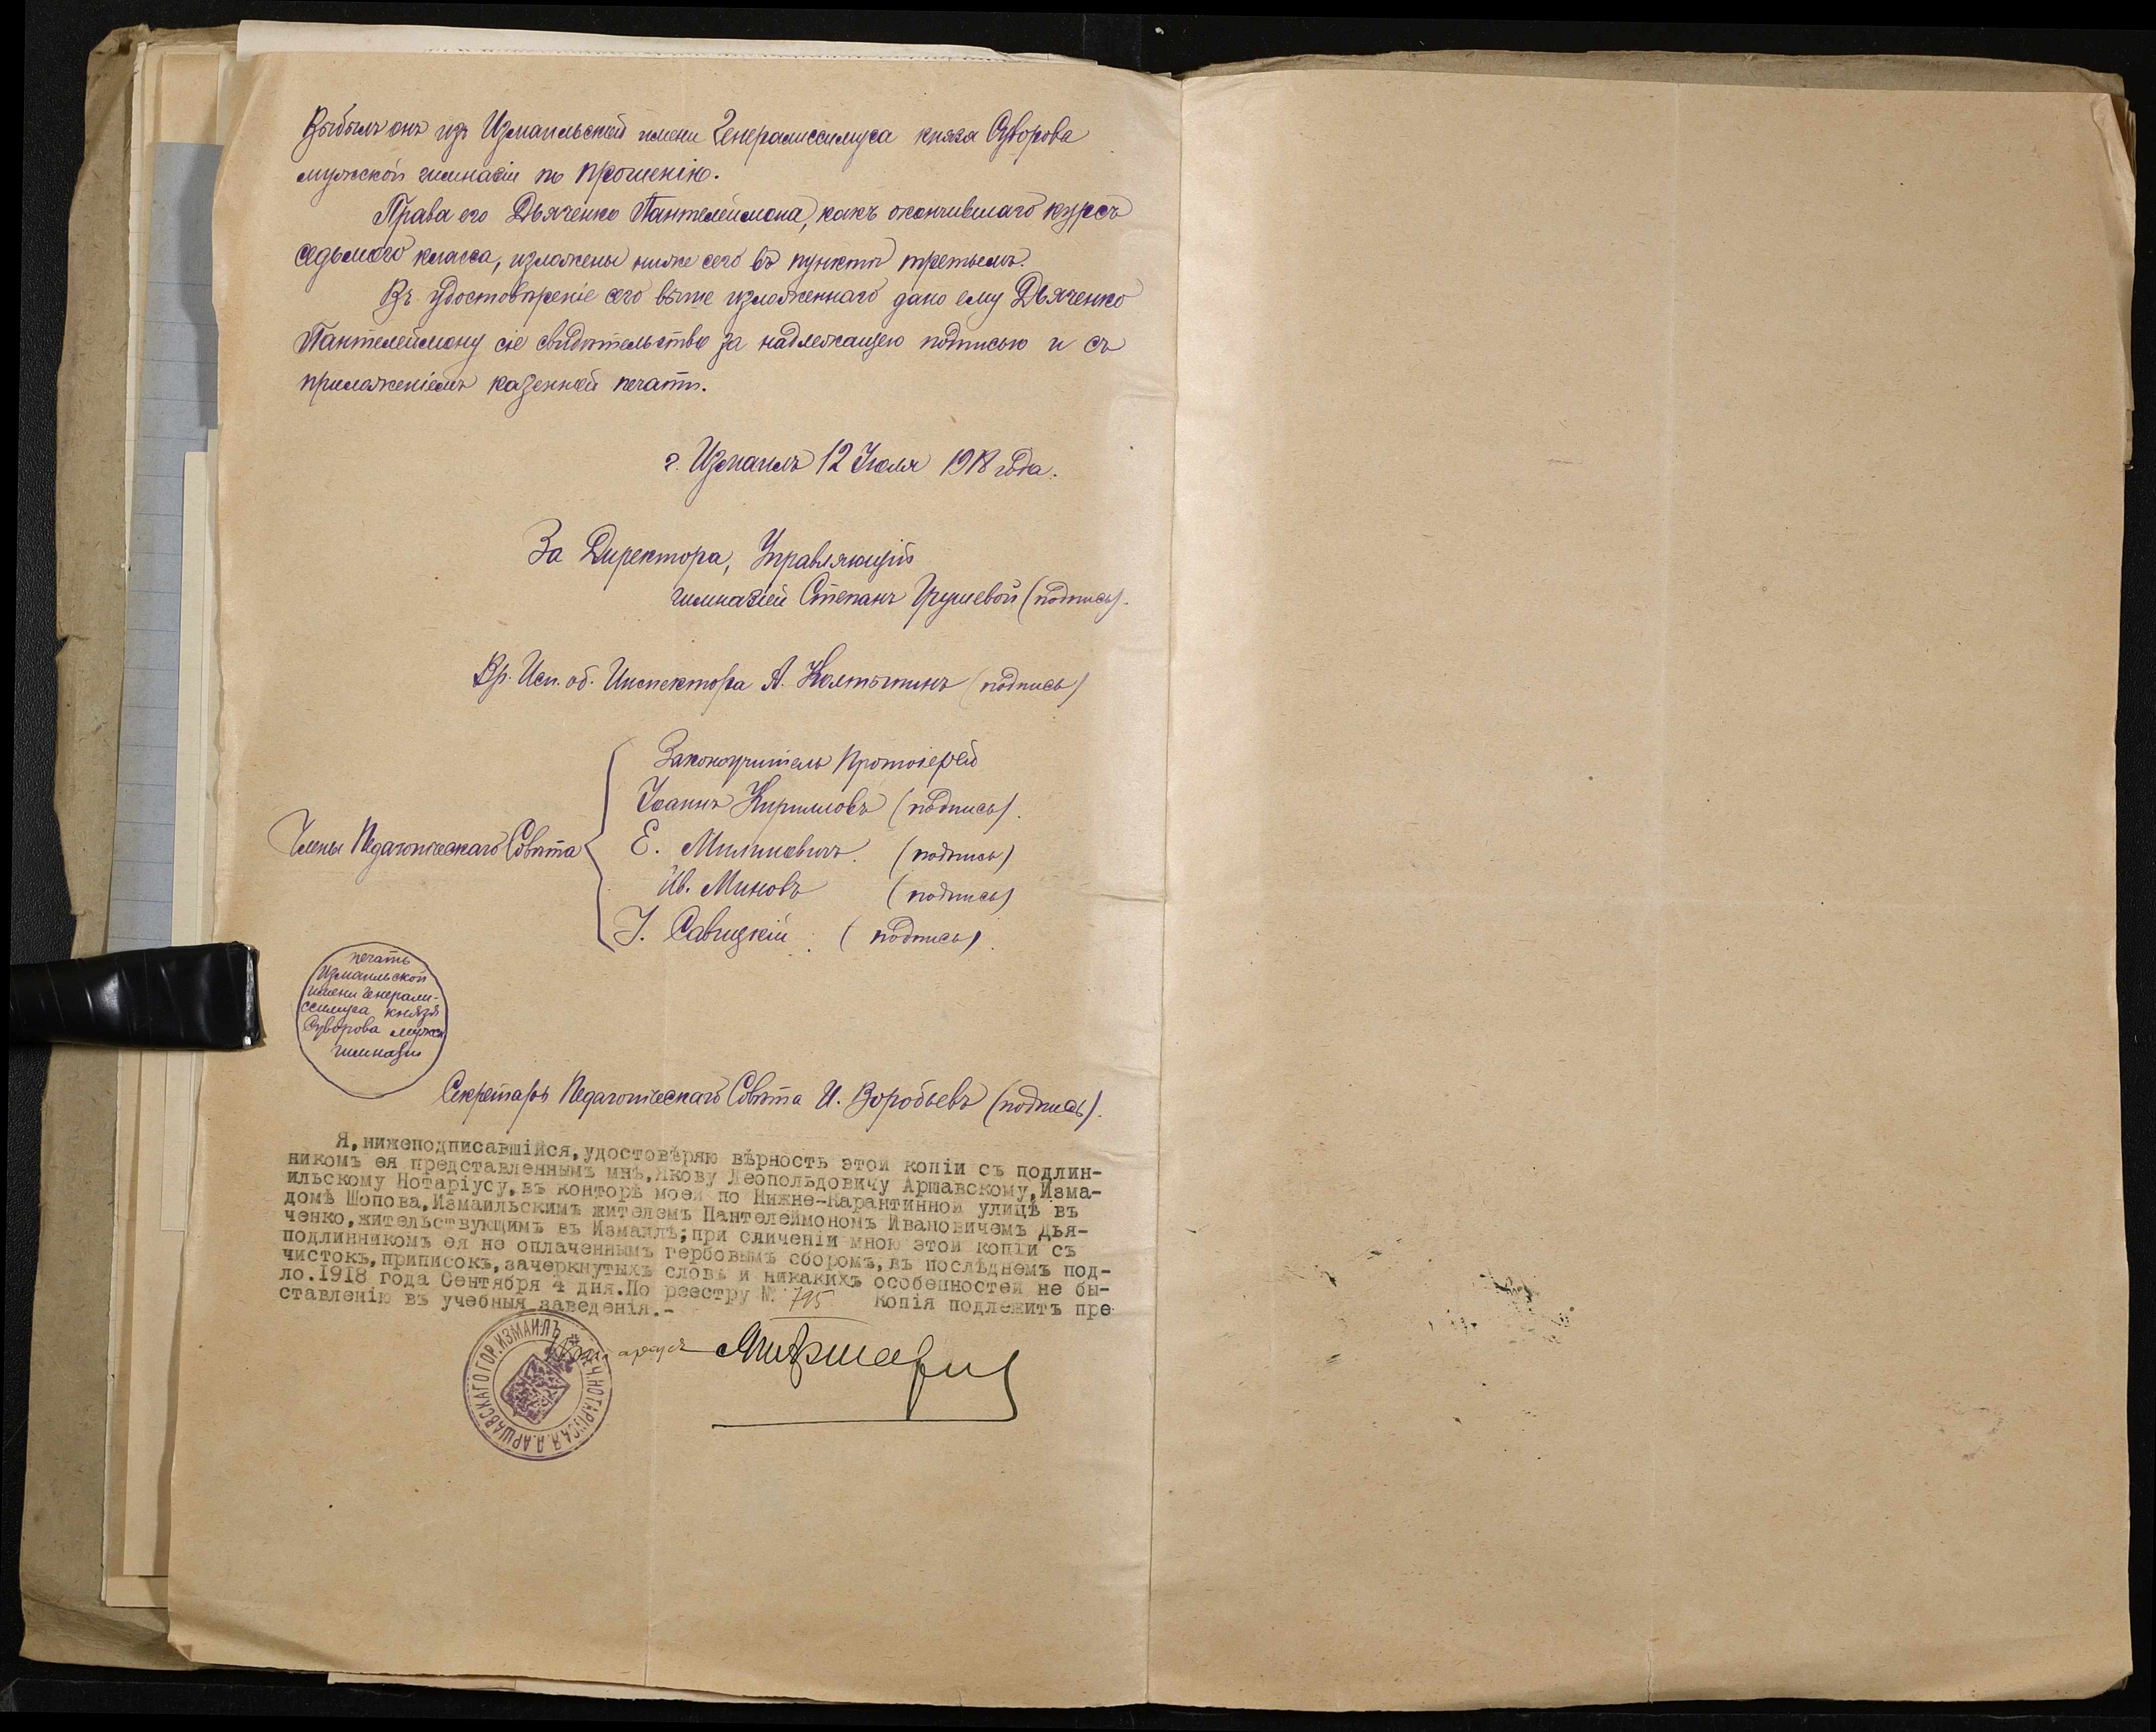 Выбылъ онъ изъ Измаильской имени Генералиссимуса князя Суворова
мужской гимназіи по прошенію.
Права его Дьяченко Пантелеймона, какъ окончившаго курсъ
седьмого класса, изложены ниже сего въ пунктѣ третьемъ.
Въ удостовѣреніе сего выше изложеннаго дано ему Дьяченко
Пантелеймону сіе свидѣтельство за надлежащею подписью и съ
приложеніемъ казенной печати.
г. Измаилъ 12 Іюля 1918 года.
За Директора, Управляющій
гимназіей Степанъ Грушевой (подпись).
Вр. Исп. об. Инспектора А. Колтыпинъ (подпись)
Законоучитель Протоіерей
Іоаннъ Кирилловъ (подпись).
Члены Педагогическаго Совѣта
Е. Милиневичъ. (подпись)
Ив. Миновъ (подпись)
І. Савицкій. (подпись).
печать
Измаильской
имени Генерали-
ссимуса князя
Суворова мужск
гимназіи
Секретарь Педагогическаго Совѣта И. Воробьевъ (подпись).
Я, нижеподписавшійся, удостовѣряю вѣрность этой копіи съ подлин-
никомъ ея представленнымъ мнѣ, Якову Леопольдовичу Аршавскому, Изма-
ильскому Нотаріусу, въ конторѣ моей по Нижне-Карантинной улицѣ въ
домѣ Шопова, Измаильскимъ жителемъ Пантелеймономъ Ивановичемъ Дья-
ченко, жительствующимъ въ Измаилѣ; при сличеніи мною этой копіи съ
подлинникомъ ея не оплаченнымъ гербовымъ сборомъ, въ послѣднемъ под-
чистокъ, приписокъ, зачеркнутыхъ словъ и никакихъ особенностей не бы-
ло. 1918 года Сентября 4 дня. По реестру № 795 Копія подлежитъ пре
ставленію въ учебныя заведенія.-
Нотаріусъ
ПЕЧ. НОТАРІУСА Я.Л. АРШАВСКАГО ГОР. ИЗМАИЛЪ